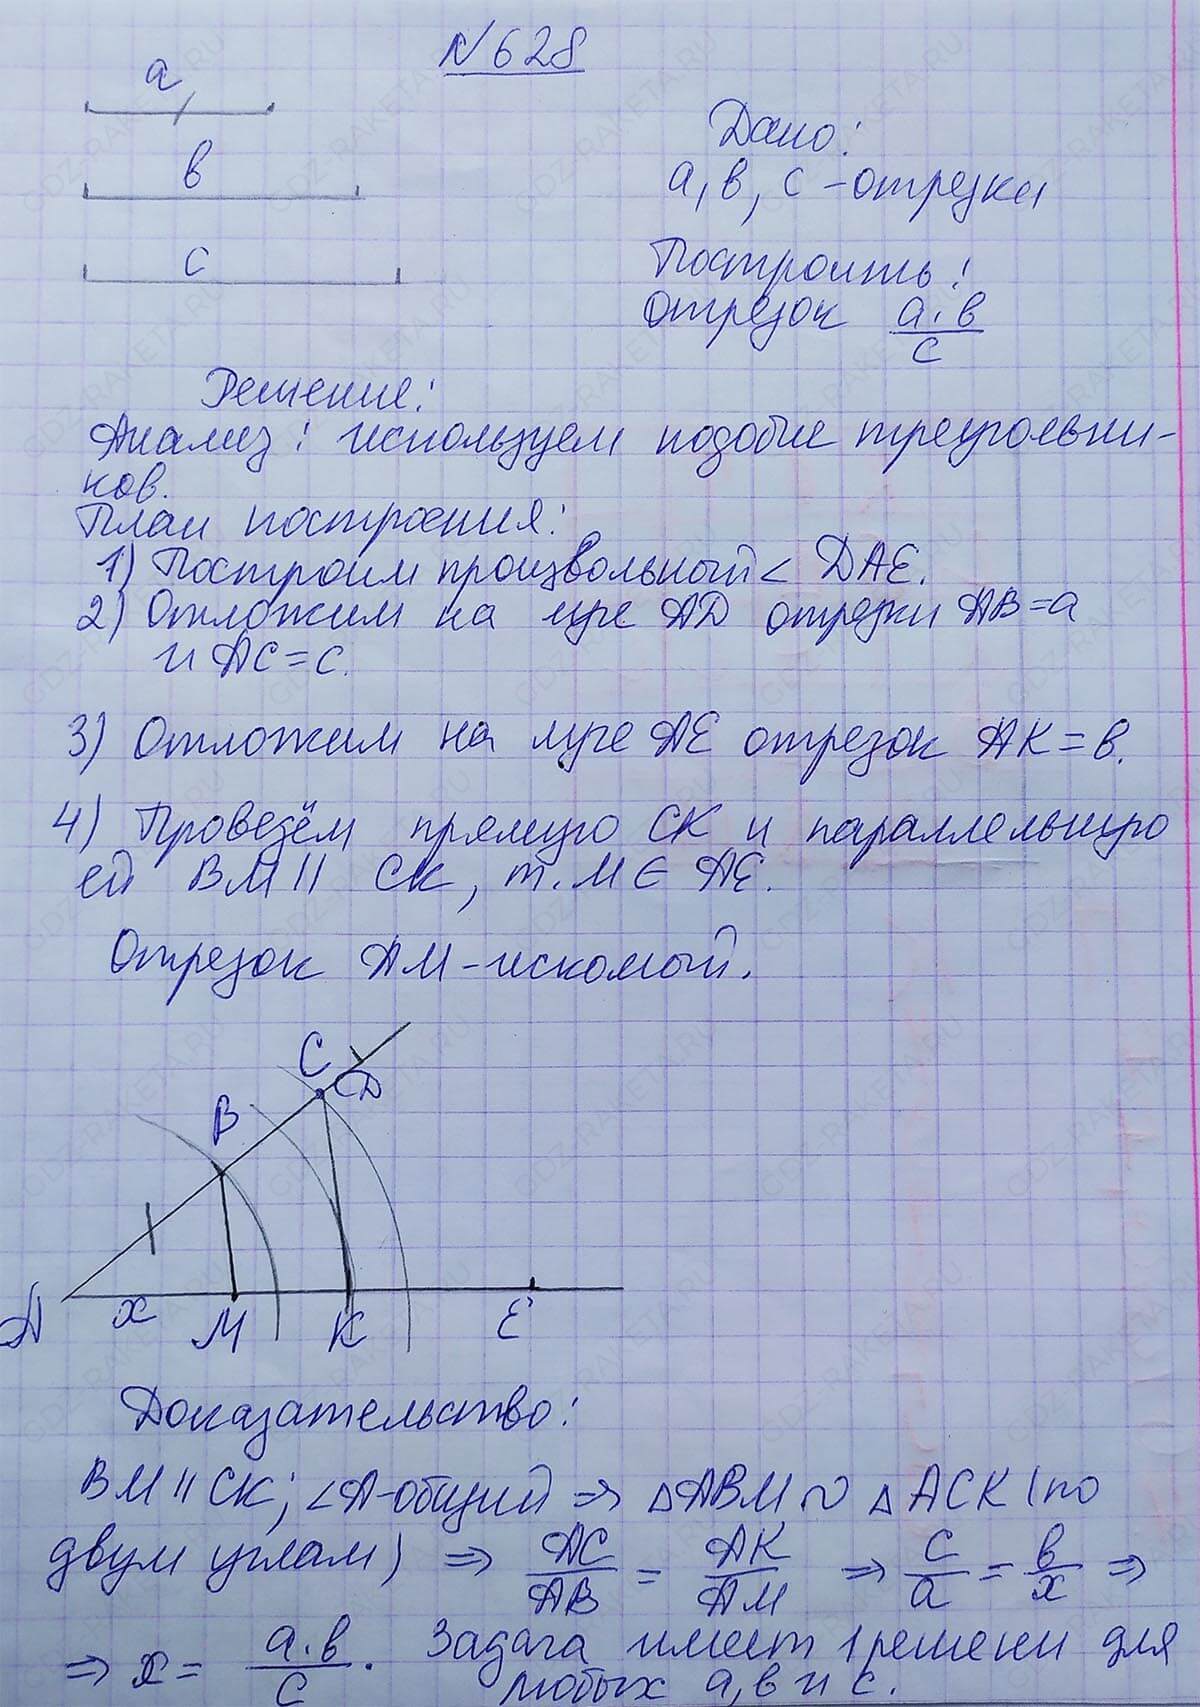 №628
a
Дано:
в
a, в, c - отрезки
c
Построить:
отрезок a·в/c
Решение:
Анализ: используем подобие треугольни-
ков.
План построения:
1) Построим произвольный ∠ DAE.
2) Отложим на луче AD отрезки AB=a
и AC=c.
3) Отложим на луче AE отрезок AK=в.
4) Проведём прямую CK и параллельную
ей BM || CK, т. M ∈ AE.
Отрезок AM-искомый.
C
D
B
A
x
M
K
E
Доказательство:
BM || CK; ∠A-общий ⇒ △ABM ∾ △ACK (по
двум углам) ⇒ AC/AB = AK/AM ⇒ c/a = в/x ⇒
⇒ x = a·в/c. Задача имеет 1 решени для
любых a, в и c.